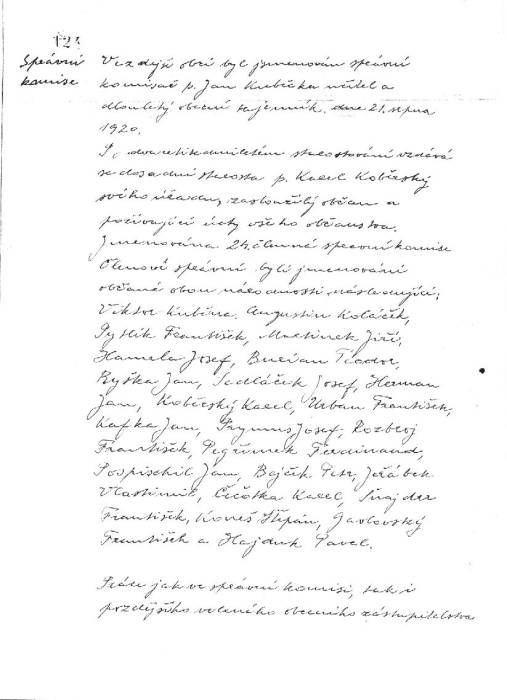 123
Správní
komise
V zdejší obci byl jmenován správní
komisař p. Jan Kubička učitel a
dlouhletý obecní tajemník, dne 21. srpna
1920.
Po dvacetisedmiletém starostování vzdává
se dosadní starosta p. Karel Kobčrský
svého úřadu, zasloužilý občan a
požívající úcty všeho občanstva.
Jmenována 24 členná správní komise
Členové správní byli jmenováni
občané obou národností následující:
Viktor Kubina, Augustin Koláček,
Pytlík František, Martinek Jiří,
Hamela Josef, Burian Teodor,
Ryška Jan, Sedláček Josef, Herman
Jan, Kobčrský Karel, Urban František,
Kafka Jan, Prymus Josef, Rozbroj
František, Pegřimek Ferdinand,
Pospischil Jan, Bajček Petr, Jeřábek
Vlastimil, Čičotka Karel, Šnajder
František, Koneš Štěpán, Gavlovský
František a Hajduk Pavel.
Práce jak ve správní komisi, tak i
pozdějšího voleného obecního zástupitelstva